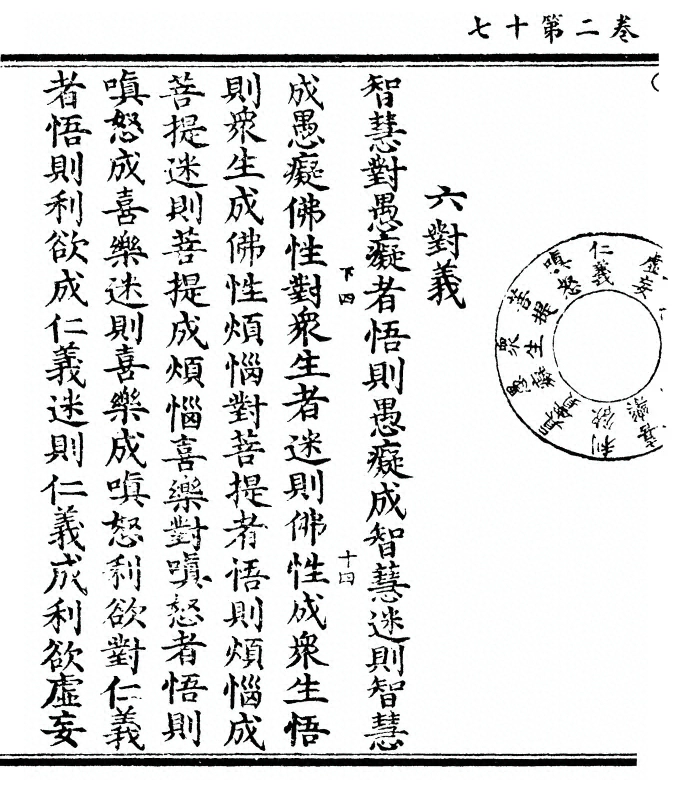 卷二第十七
虛妄
仁義
嗔怒
菩提
衆生
愚癡
利欲
喜樂
六對義
智慧對愚癡者悟則愚癡成智慧迷則智慧
下四
十四
成愚癡佛性對衆生者迷則佛性成衆生悟
則衆生成佛性煩惱對菩提者悟則煩惱成
菩提迷則菩提成煩惱喜樂對嗔怒者悟則
嗔怒成喜樂迷則喜樂成嗔怒利欲對仁義
者悟則利欲成仁義迷則仁義成利欲虛妄